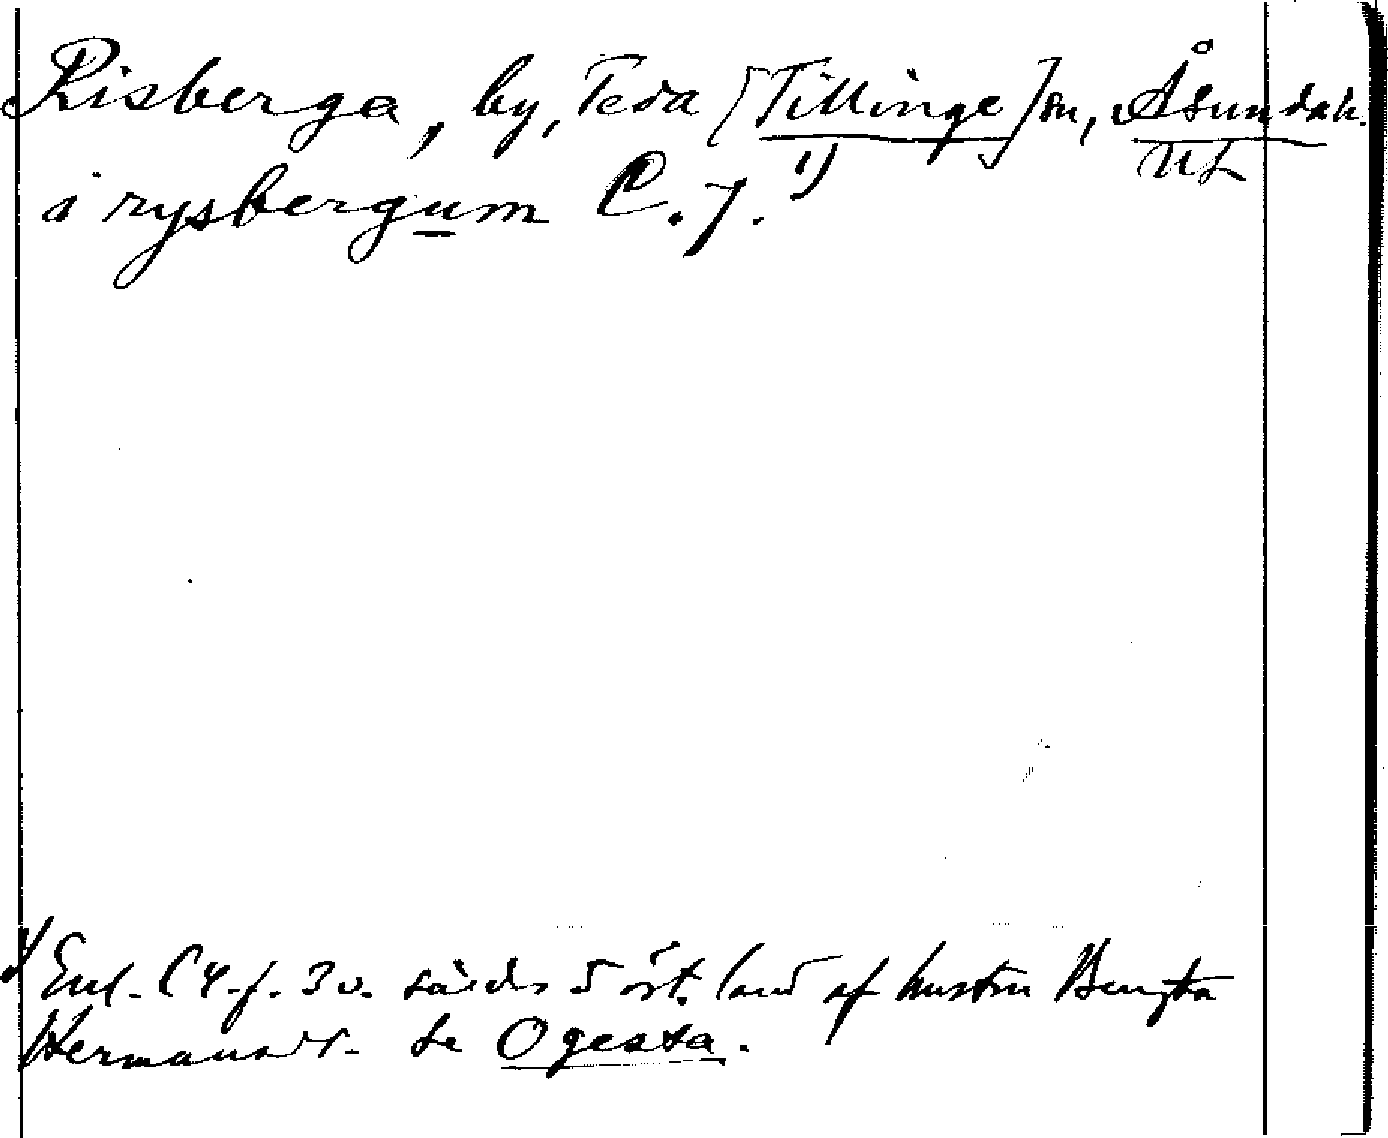 Risberga, by, Teda [Tillinge] sn, Åsundah.
UL
i rysbergum C. 7. 1)
1) Enl. C 4. f. 3 v. såldes 5 ört. land af hustru Bengta
Hermansdr. Se Ogesta.